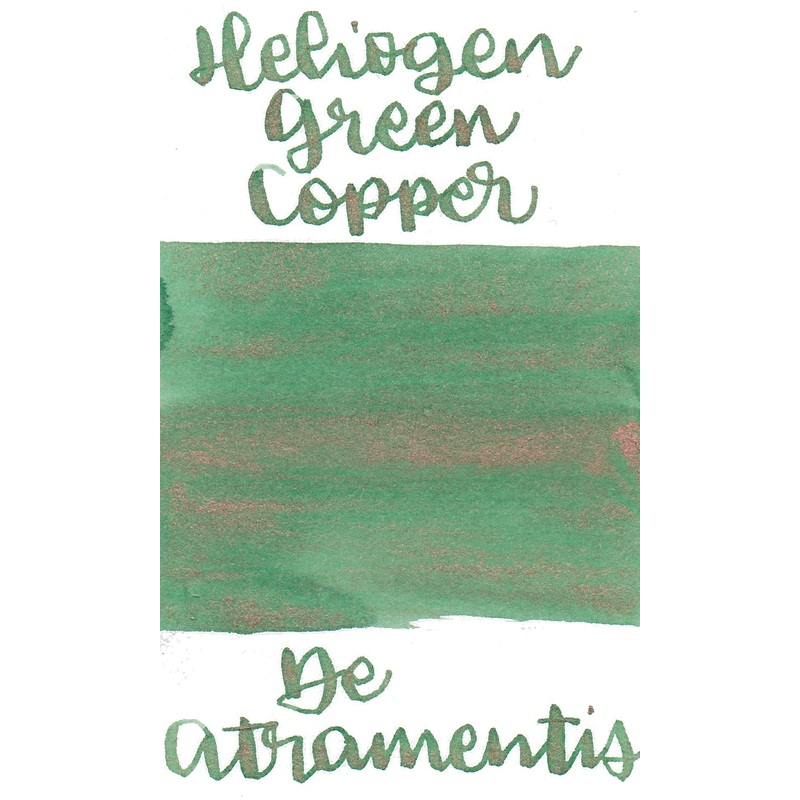 Heliogen
Green
Copper
De
Atramentis